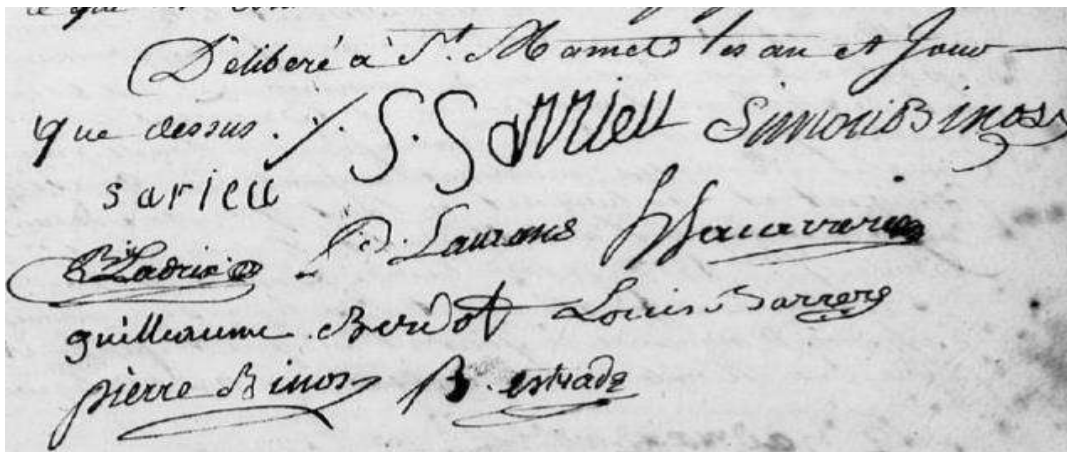 ce que
Déliberé à St. Mamet les an et Jour
que dessus ./. S. Sarrieu Simon Binos
sarieu
B. Ladrix P. Laurans
guilleaume Berdot Louis Barrere
pierre Binos B. estrade